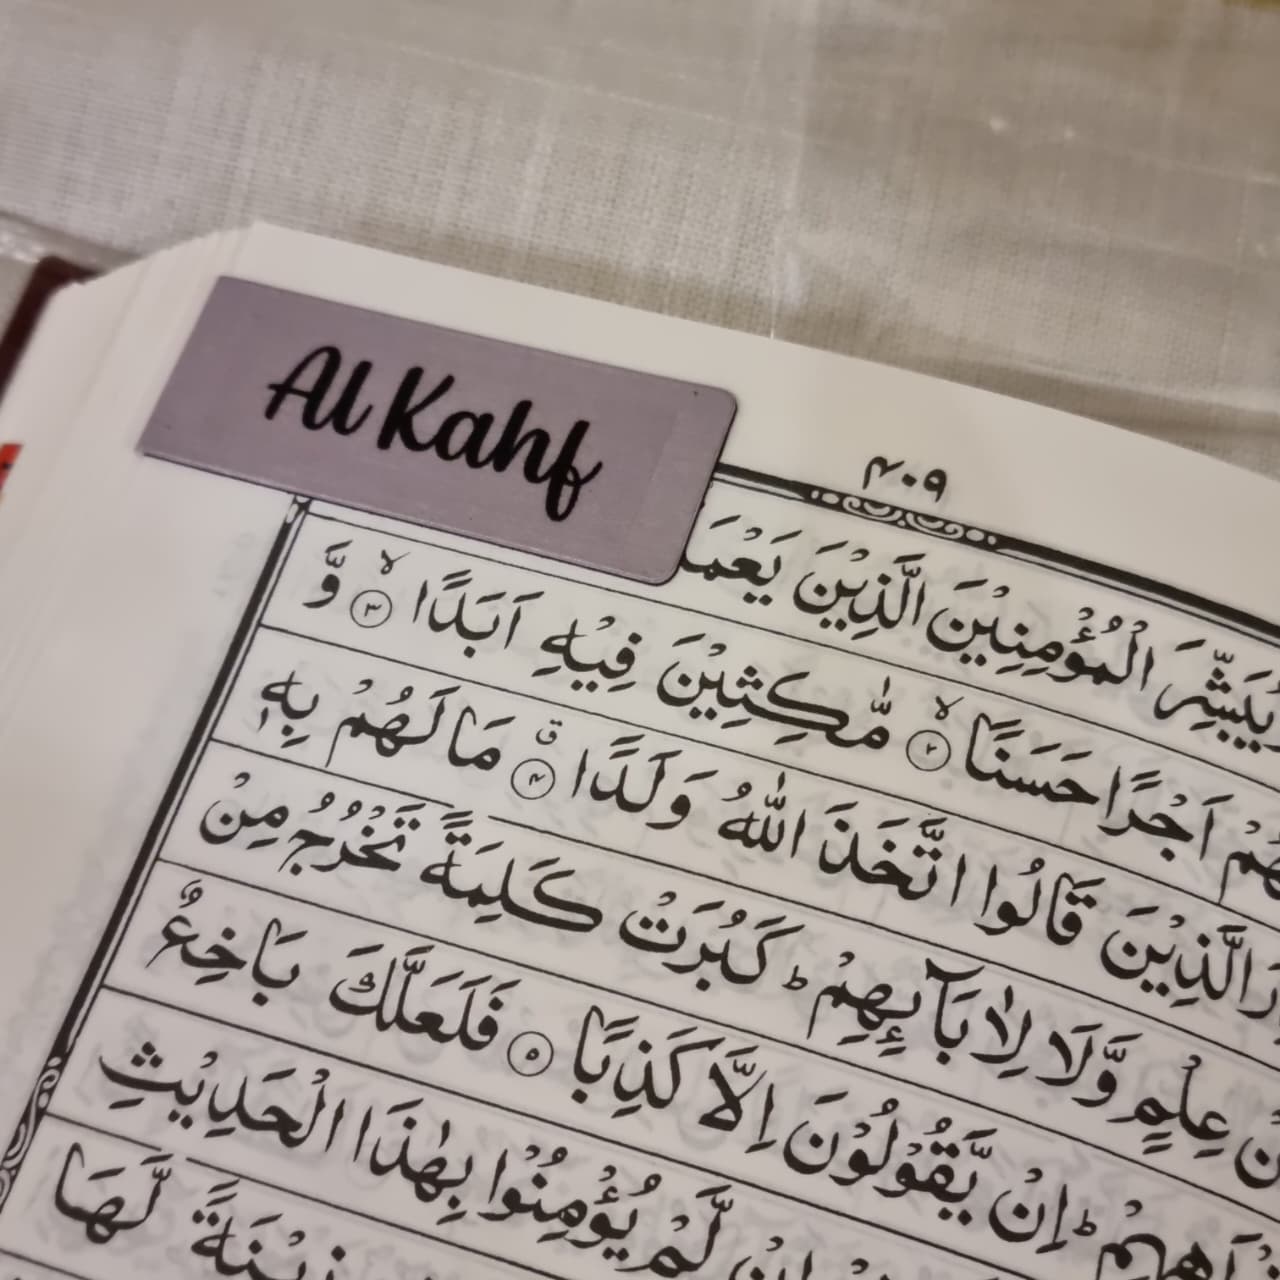 Al Kahf
۴۰۹
يُبَشِّرَ الْمُؤْمِنِيْنَ الَّذِيْنَ
اَجْرًا حَسَنًا ۙ﴿۲﴾ مَّٰكِثِيْنَ فِيْهِ اَبَدًا ۙ﴿۳﴾ وَّ
الَّذِيْنَ قَالُوا اتَّخَذَ اللّٰهُ وَلَدًا ۗ﴿۴﴾ مَا لَهُمْ بِهٖ
عِلْمٍ وَّلَا لِاٰبَآىِٕهِمْ ؕ كَبُرَتْ كَلِمَةً تَخْرُجُ مِنْ
ؕ اِنْ يَّقُوْلُوْنَ اِلَّا كَذِبًا ﴿۵﴾ فَلَعَلَّكَ بَاخِعٌ
لَّمْ يُؤْمِنُوْا بِهٰذَا الْحَدِيْثِ
زِيْنَةً لَّهَا